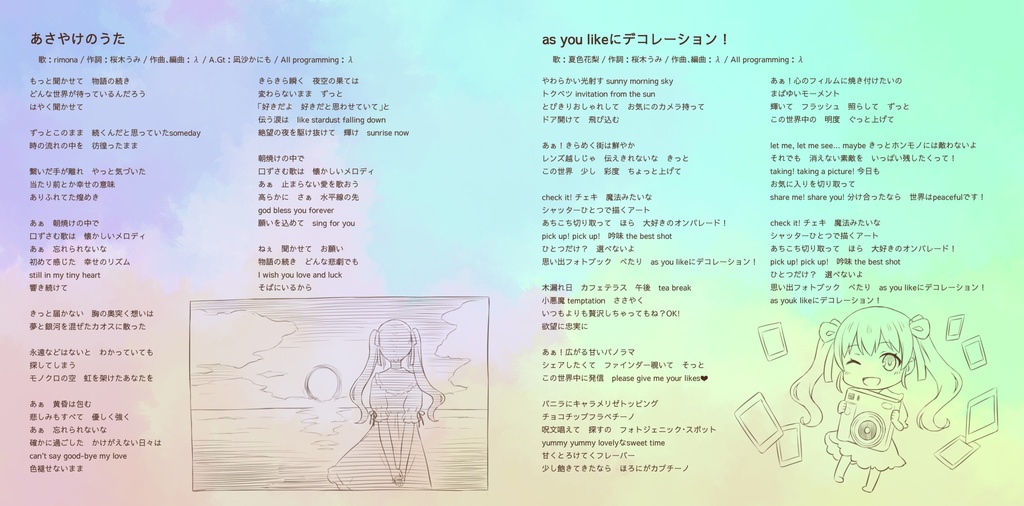 あさやけのうた
歌：rimona / 作詞：桜木うみ / 作曲、編曲：λ / A.Gt：凪沙かにも / All programming：λ
もっと聞かせて　物語の続き
どんな世界が待っているんだろう
はやく聞かせて
ずっとこのまま　続くんだと思っていたsomeday
時の流れの中を　彷徨ったまま
繋いだ手が離れ　やっと気づいた
当たり前とか幸せの意味
ありふれてた煌めき
あぁ　朝焼けの中で
口ずさむ歌は　懐かしいメロディ
あぁ　忘れられないな
初めて感じた　幸せのリズム
still in my tiny heart
響き続けて
きっと届かない　胸の奥突く想いは
夢と銀河を混ぜたカオスに散った
永遠などはないと　わかっていても
探してしまう
モノクロの空　虹を架けたあなたを
あぁ　黄昏は包む
悲しみもすべて　優しく強く
あぁ　忘れられないな
確かに過ごした　かけがえない日々は
can't say good-bye my love
色褪せないまま
きらきら瞬く　夜空の果ては
変わらないまま　ずっと
「好きだよ　好きだと思わせていて」と
伝う涙は　like stardust falling down
絶望の夜を駆け抜けて　輝け　sunrise now
朝焼けの中で
口ずさむ歌は　懐かしいメロディ
あぁ　止まらない愛を歌おう
高らかに　さぁ　水平線の先
god bless you forever
願いを込めて　sing for you
ねぇ　聞かせて　お願い
物語の続き　どんな悲劇でも
I wish you love and luck
そばにいるから
as you likeにデコレーション！
歌：夏色花梨 / 作詞：桜木うみ / 作曲、編曲：λ / All programming：λ
やわらかい光射す sunny morning sky
トクベツ invitation from the sun
とびきりおしゃれして　お気にのカメラ持って
ドア開けて　飛び込む
あぁ！きらめく街は鮮やか
レンズ越しじゃ　伝えきれないな　きっと
この世界　少し　彩度　ちょっと上げて
check it! チェキ　魔法みたいな
シャッターひとつで描くアート
あちこち切り取って　ほら　大好きのオンパレード！
pick up! pick up!　吟味 the best shot
ひとつだけ？　選べないよ
思い出フォトブック　ぺたり　as you likeにデコレーション！
木漏れ日　カフェテラス　午後　tea break
小悪魔 temptation　ささやく
いつもよりも贅沢しちゃってもね？OK!
欲望に忠実に
あぁ！広がる甘いパノラマ
シェアしたくて　ファインダー覗いて　そっと
この世界中に発信　please give me your likes❤
バニラにキャラメリゼトッピング
チョコチップフラペチーノ
呪文唱えて　探すの　フォトジェニック・スポット
yummy yummy lovelyなsweet time
甘くとろけてくフレーバー
少し飽きてきたなら　ほろにがカプチーノ
あぁ！心のフィルムに焼き付けたいの
まばゆいモーメント
輝いて　フラッシュ　照らして　ずっと
この世界中の　明度　ぐっと上げて
let me, let me see... maybe きっとホンモノには敵わないよ
それでも　消えない素敵を　いっぱい残したくって！
taking! taking a picture! 今日も
お気に入りを切り取って
share me! share you! 分け合ったなら　世界はpeacefulです！
check it! チェキ　魔法みたいな
シャッターひとつで描くアート
あちこち切り取って　ほら　大好きのオンパレード！
pick up! pick up!　吟味 the best shot
ひとつだけ？　選べないよ
思い出フォトブック　ぺたり　as you likeにデコレーション！
as youk likeにデコレーション！